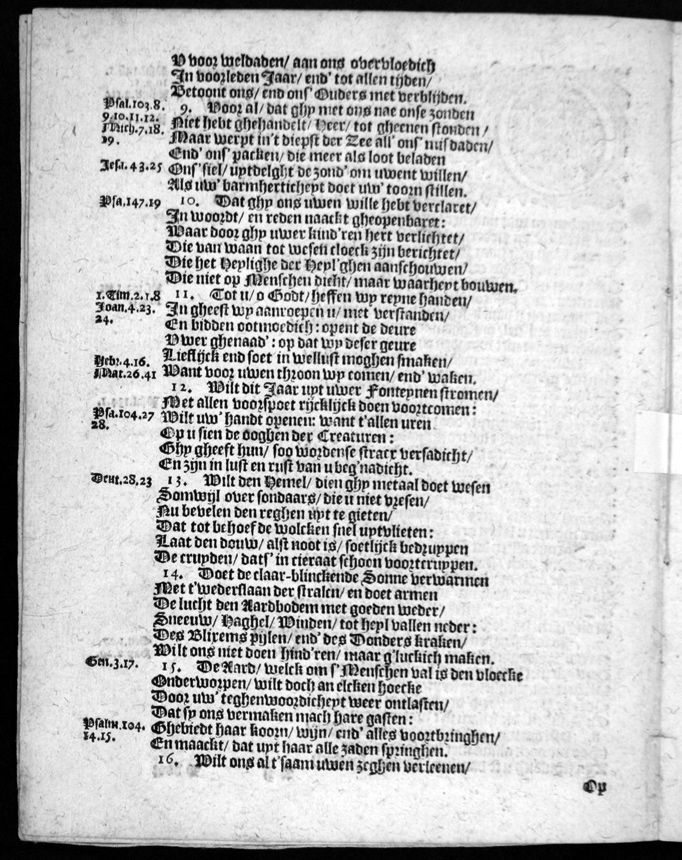 V voor weldaden/ aan ons overvloedich
In voorleden Jaar/ end' tot allen tijden/
Betoont ons/ end ons' Ouders met verblijden.
Psal.103.8. 9. Voor al/ dat ghy met ons nae onse zonden
9.10.11.12. Niet hebt ghehandelt/ Heer/ tot gheenen stonden/
Mich.7.18. Maar werpt in't diepst der Zee all' ons' misdaden/
19. End' ons' packen/ die meer als loot beladen
Jesa.43.25 Ons' siel/ uytdelght de zond' om uwent willen/
Als uw' barmherticheyt doet uw' toorn stillen.
Psa.147.19 10. Dat ghy ons uwen wille hebt verclaret/
In woordt/ en reden naackt gheopenbaret:
Waar door ghy uwer kind'ren hert verlichtet/
Die van waan tot wesen cloeck zijn berichtet/
Die het Heylighe der Heyl'ghen aanschouwen/
Die niet op Menschen dicht/ maar waarheyt bouwen.
1.Tim.2.1.8 11. Tot u/ o Godt/ heffen wy reyne handen/
Joan.4.23. In gheest wy aanroepen u/ met verstanden/
24. En bidden ootmoedich: opent de deure
Vwer ghenaad': op dat wy deser geure
Lieflijck end soet in wellust moghen smaken/
Hebr.4.16. Want voor uwen throon wy comen/ end' waken.
Mat.26.41 12. Wilt dit Jaar uyt uwer Fonteynen stromen/
Met allen voorspoet rijcklijck doen voortcomen:
Psa.104.27 Wilt uw' handt openen: want t'allen uren
28. Op u sien de ooghen der Creaturen:
Ghy gheeft hun/ soo wordense stracx versadicht/
En zijn in lust en rust van u beg'nadicht.
Deut.28.23 13. Wilt den Hemel/ dien ghy metaal doet wesen
Somwijl over sondaars/ die u niet vresen/
Nu bevelen den reghen uyt te gieten/
Dat tot behoef de wolcken snel uytvlieten:
Laat den douw/ alst noot is/ soetlijck bedruppen
De cruyden/ dats' in cieraat schoen voortcruppen.
14. Doet de claar-blinckende Sonne verwarmen
Met t'wederslaan der stralen/ en doet armen
De lucht den Aardbodem met goeden weder/
Sneeuw/ Haghel/ Winden/ tot heyl vallen neder:
Des Blixems pijlen/ end' des Donders kraken/
Wilt ons niet doen hind'ren/ maar g'luckich maken.
Gen.3.17. 15. De Aard/ welck om s' Menschen val is den vloecke
Onderworpen/ wilt doch an elcken hoecke
Door uw' teghenwoordicheyt weer ontlasten/
Dat sy ons vermaken mach hare gasten:
Psalm.104. Ghebiedt haar koorn/ wijn/ end' alles voortbringhen/
14.15. En maackt/ dat uyt haar alle zaden springhen.
16. Wilt ons al t'saam uwen zeghen verleenen/
Op